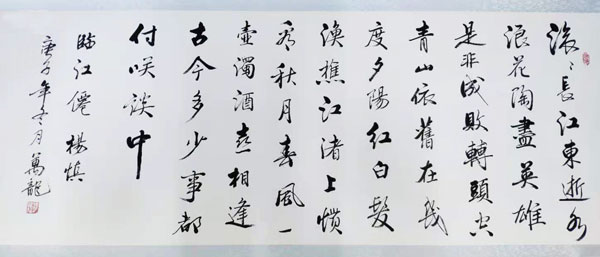 滚〻長江東逝水
浪花陶盡英雄
是非成敗轉頭空
青山依舊在幾
度夕陽紅白髮
漁樵江渚上慣
看秋月春風一
壺濁酒喜相逢
古今多少事都
付咲談中
臨江僊 楊慎
庚子年冬月萬龍